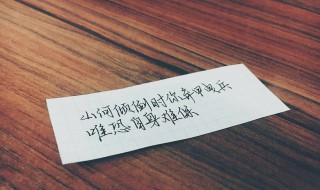 山河倾倒时你弃甲曳兵
唯恐自身难保